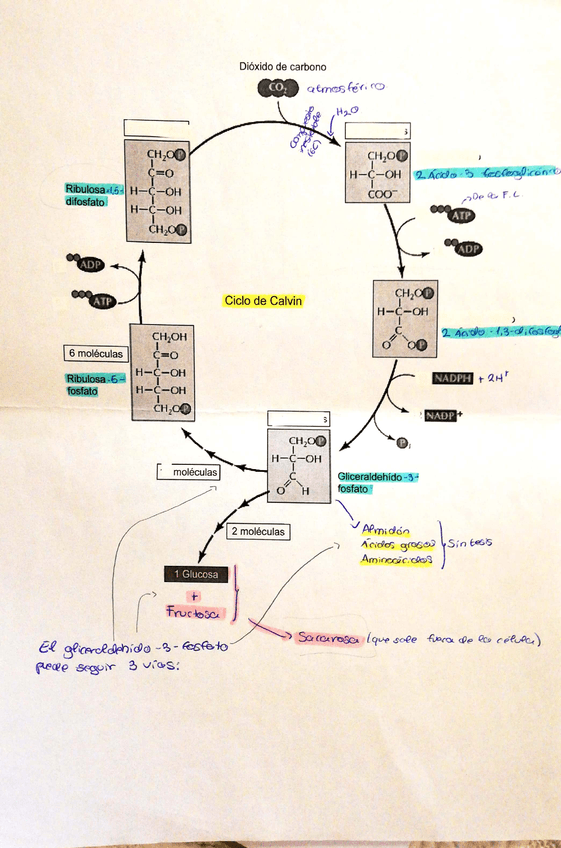 Dióxido de carbono
CO₂ atmosférico
H₂O
(6C)
CH₂OP
C=O
H-C-OH
H-C-OH
CH₂OP
Ribulosa-1,5-
difosfato
CH₂OP
H-C-OH
COO⁻
2 Ácido-3 fosfoglicérico
ATP
De la F.L.
ADP
ADP
ATP
Ciclo de Calvin
CH₂OP
H-C-OH
C
O OP
2 Ácido-1,3-difosfogl
6 moléculas
Ribulosa-5-
fosfato
CH₂OH
C=O
H-C-OH
H-C-OH
CH₂OP
NADPH + 2H⁺
NADP+
Pi
s
CH₂OP
H-C-OH
C
O H
Gliceraldehído-3-
fosfato
moléculas
2 moléculas
Almidón
Ácidos grasos
Aminoácidos
Síntesis
1 Glucosa
+
Fructosa
Sacarosa (que sale fuera de la célula)
El gliceraldehido-3-fosfato
puede seguir 3 vías: